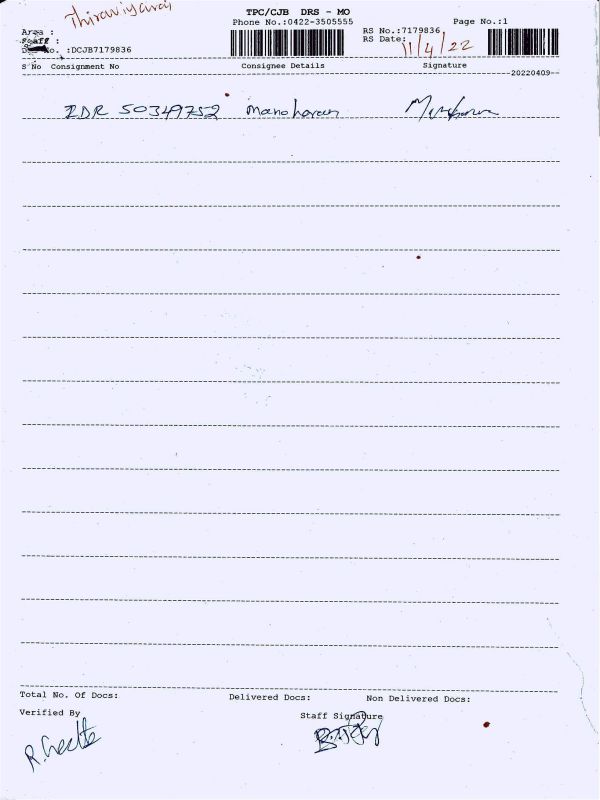 Thiraviyaraj
TPC/CJB DRS - MO
Phone No.:0422-3505555
Page No.:1
Area :
RS No.:7179836
Staff :
RS Date: 11/4/22
No. :DCJB7179836
S No Consignment No Consignee Details Signature
20220409
IDR 50349752 Manoharan
Total No. Of Docs: Delivered Docs: Non Delivered Docs:
Verified By
Staff Signature